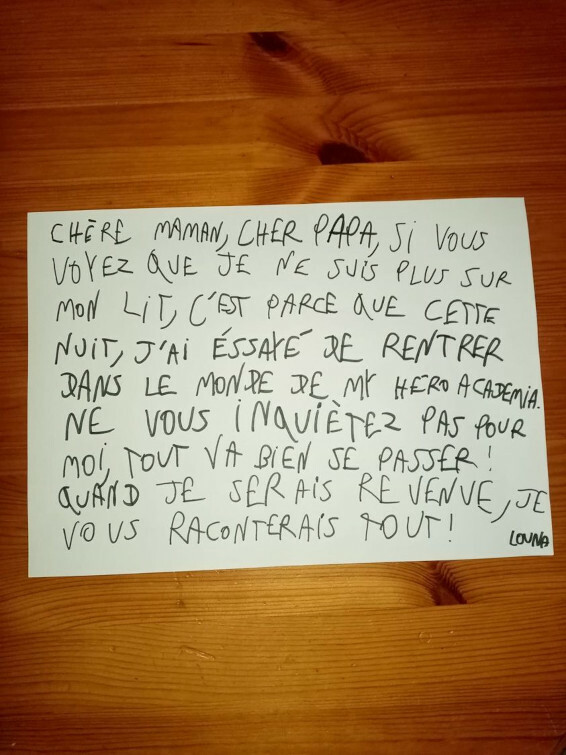 CHÈRE MAMAN, CHER PAPA, SI VOUS
VOYEZ QUE JE NE SUIS PLUS SUR
MON LIT, C'EST PARCE QUE CETTE
NUIT, J'AI ÉSSAYÉ DE RENTRER
DANS LE MONDE DE MY HERO ACADEMIA.
NE VOUS INQUIÈTEZ PAS POUR
MOI, TOUT VA BIEN SE PASSER !
QUAND JE SERAIS REVENUE, JE
VOUS RACONTERAIS TOUT !
LOUNA